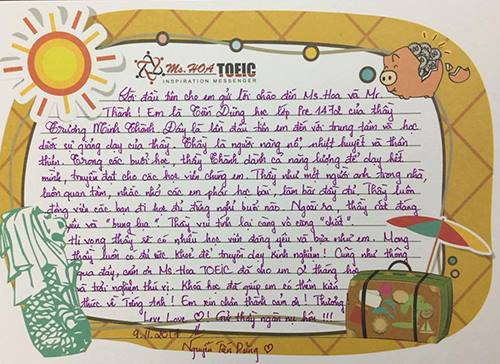 Ms. HOA TOEIC
INSPIRATION MESSENGER
Lời đầu tiên cho em gửi lời chào đến Ms Hoa và Mr.
Thành! Em là Tiến Dũng học lớp Pre 1472 của thầy
Trương Minh Thành. Đây là lần đầu tiên em đến với trung tâm và học
dưới sự giảng dạy của thầy. Thầy là người năng nổ, nhiệt huyết và thân
thiện. Trong các buổi học, thầy Thành dành cả năng lượng để dạy hết
mình, truyền đạt cho các học viên chúng em. Thầy như một người anh trong nhà,
luôn quan tâm, nhắc nhở các em phải học bài, làm bài đầy đủ. Thầy luôn
động viên các bạn đi học đủ đừng nghỉ buổi nào. Ngoài ra, thầy rất đáng
yêu và bung lụa". Thầy vui tính lại càng vô cùng "chất".
Hi vọng thầy sẽ có nhiều học viên đáng yêu và bựa như em. Mong
thầy luôn có đủ sức khoẻ để truyền dạy kinh nghiệm! Cũng như tháng
qua đây, cảm ơn Ms Hoa TOEIC đã cho em 2 tháng học
và trải nghiệm thú vị. Khoá học đã giúp em có thêm kiến
thức về Tiếng Anh! Em xin chân thành cảm ơn! Thương
Love Love ♡! Gửi thầy ngàn nụ hôn!!!
9.11.2017
Nguyễn Tiến Dũng ♡